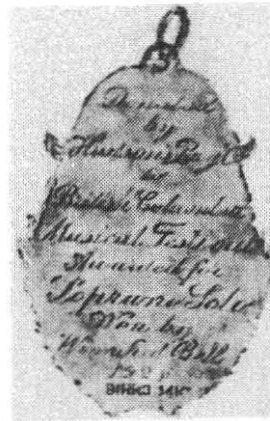 Donated
by
Hudson's Bay Co
to
British Columbia
Musical Festival
Awarded for
Soprano Solo
Won by
Winnifred Ball